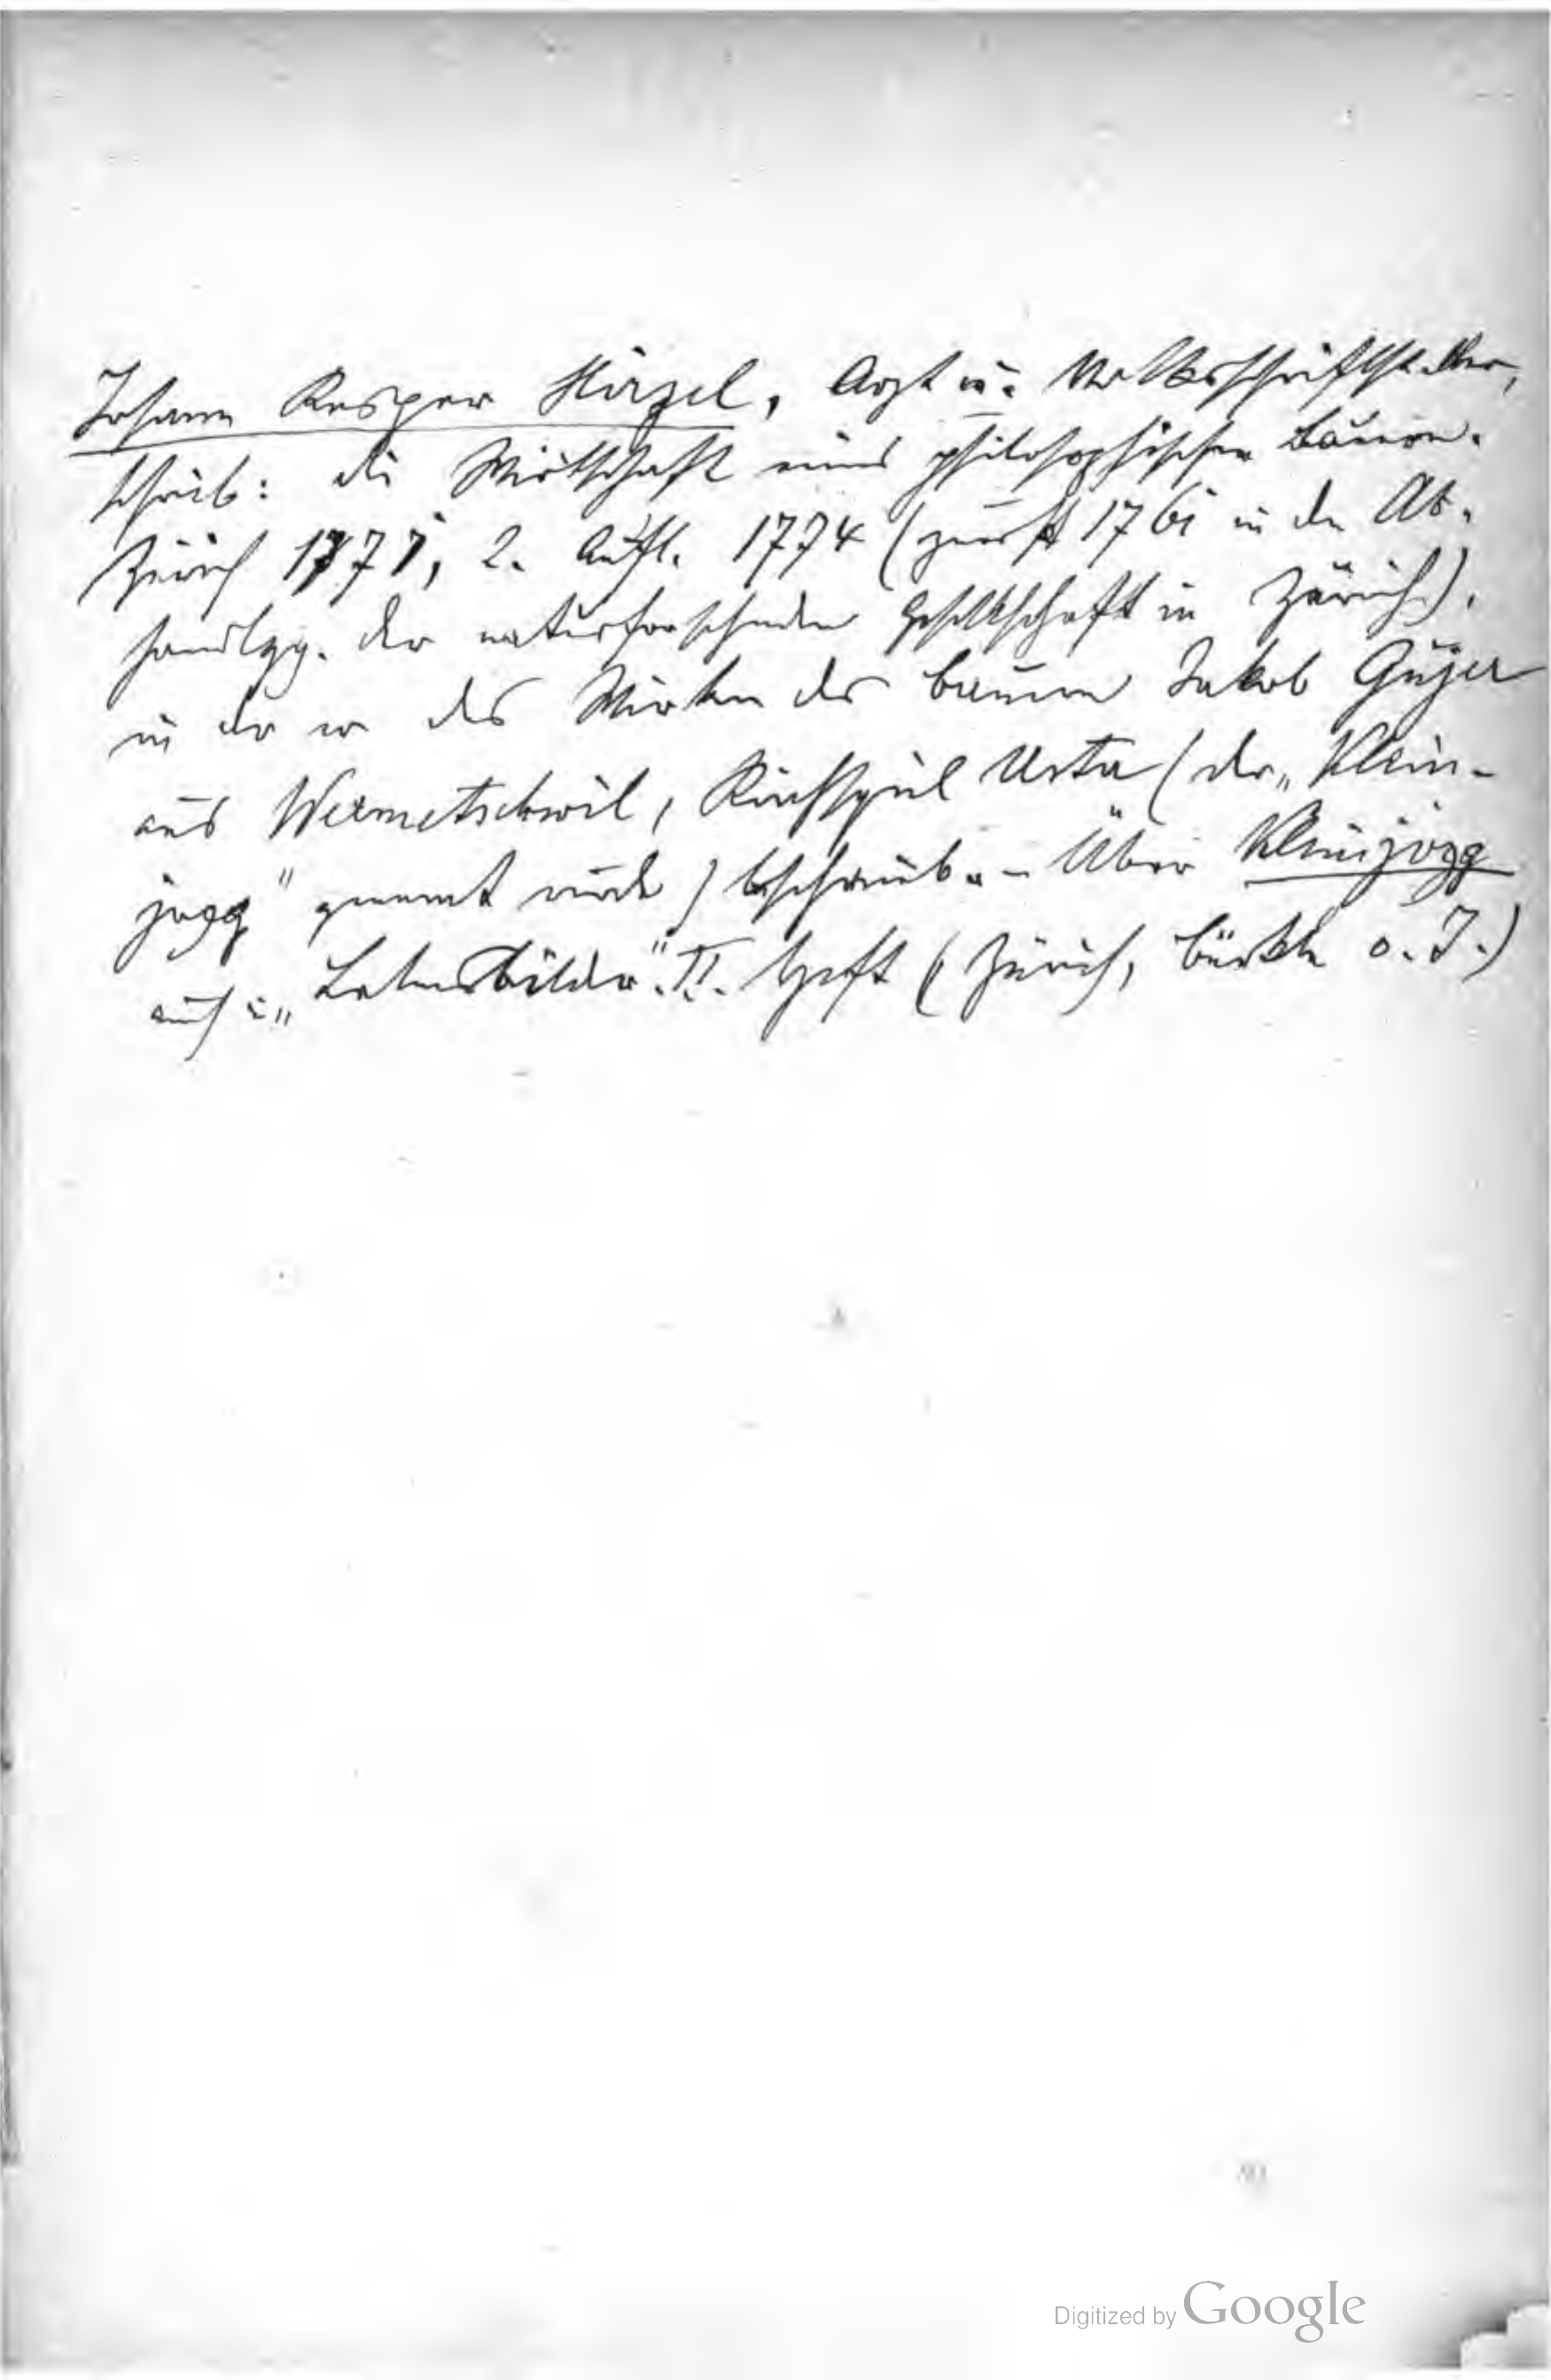 Johann Kaspar Hirzel, Arzt u. Volksschriftsteller,
schrieb: die Wirtschaft eines philosophischen Bauern.
Zürich 1771, 2. Aufl. 1774 (zuerst 1761 in den Ab-
handlgg. der naturforschenden Gesellschaft in Zürich),
in der er das Wirken des Bauern Jakob Gujer
aus Wermetschwil, Kirchspiel Uster (der „Klein-
jogg" genannt wird) beschreibt. – Über Kleinjogg
auch: „Lebensbilder". II. Heft (Zürich, Bürkli o. J.)
Digitized by Google